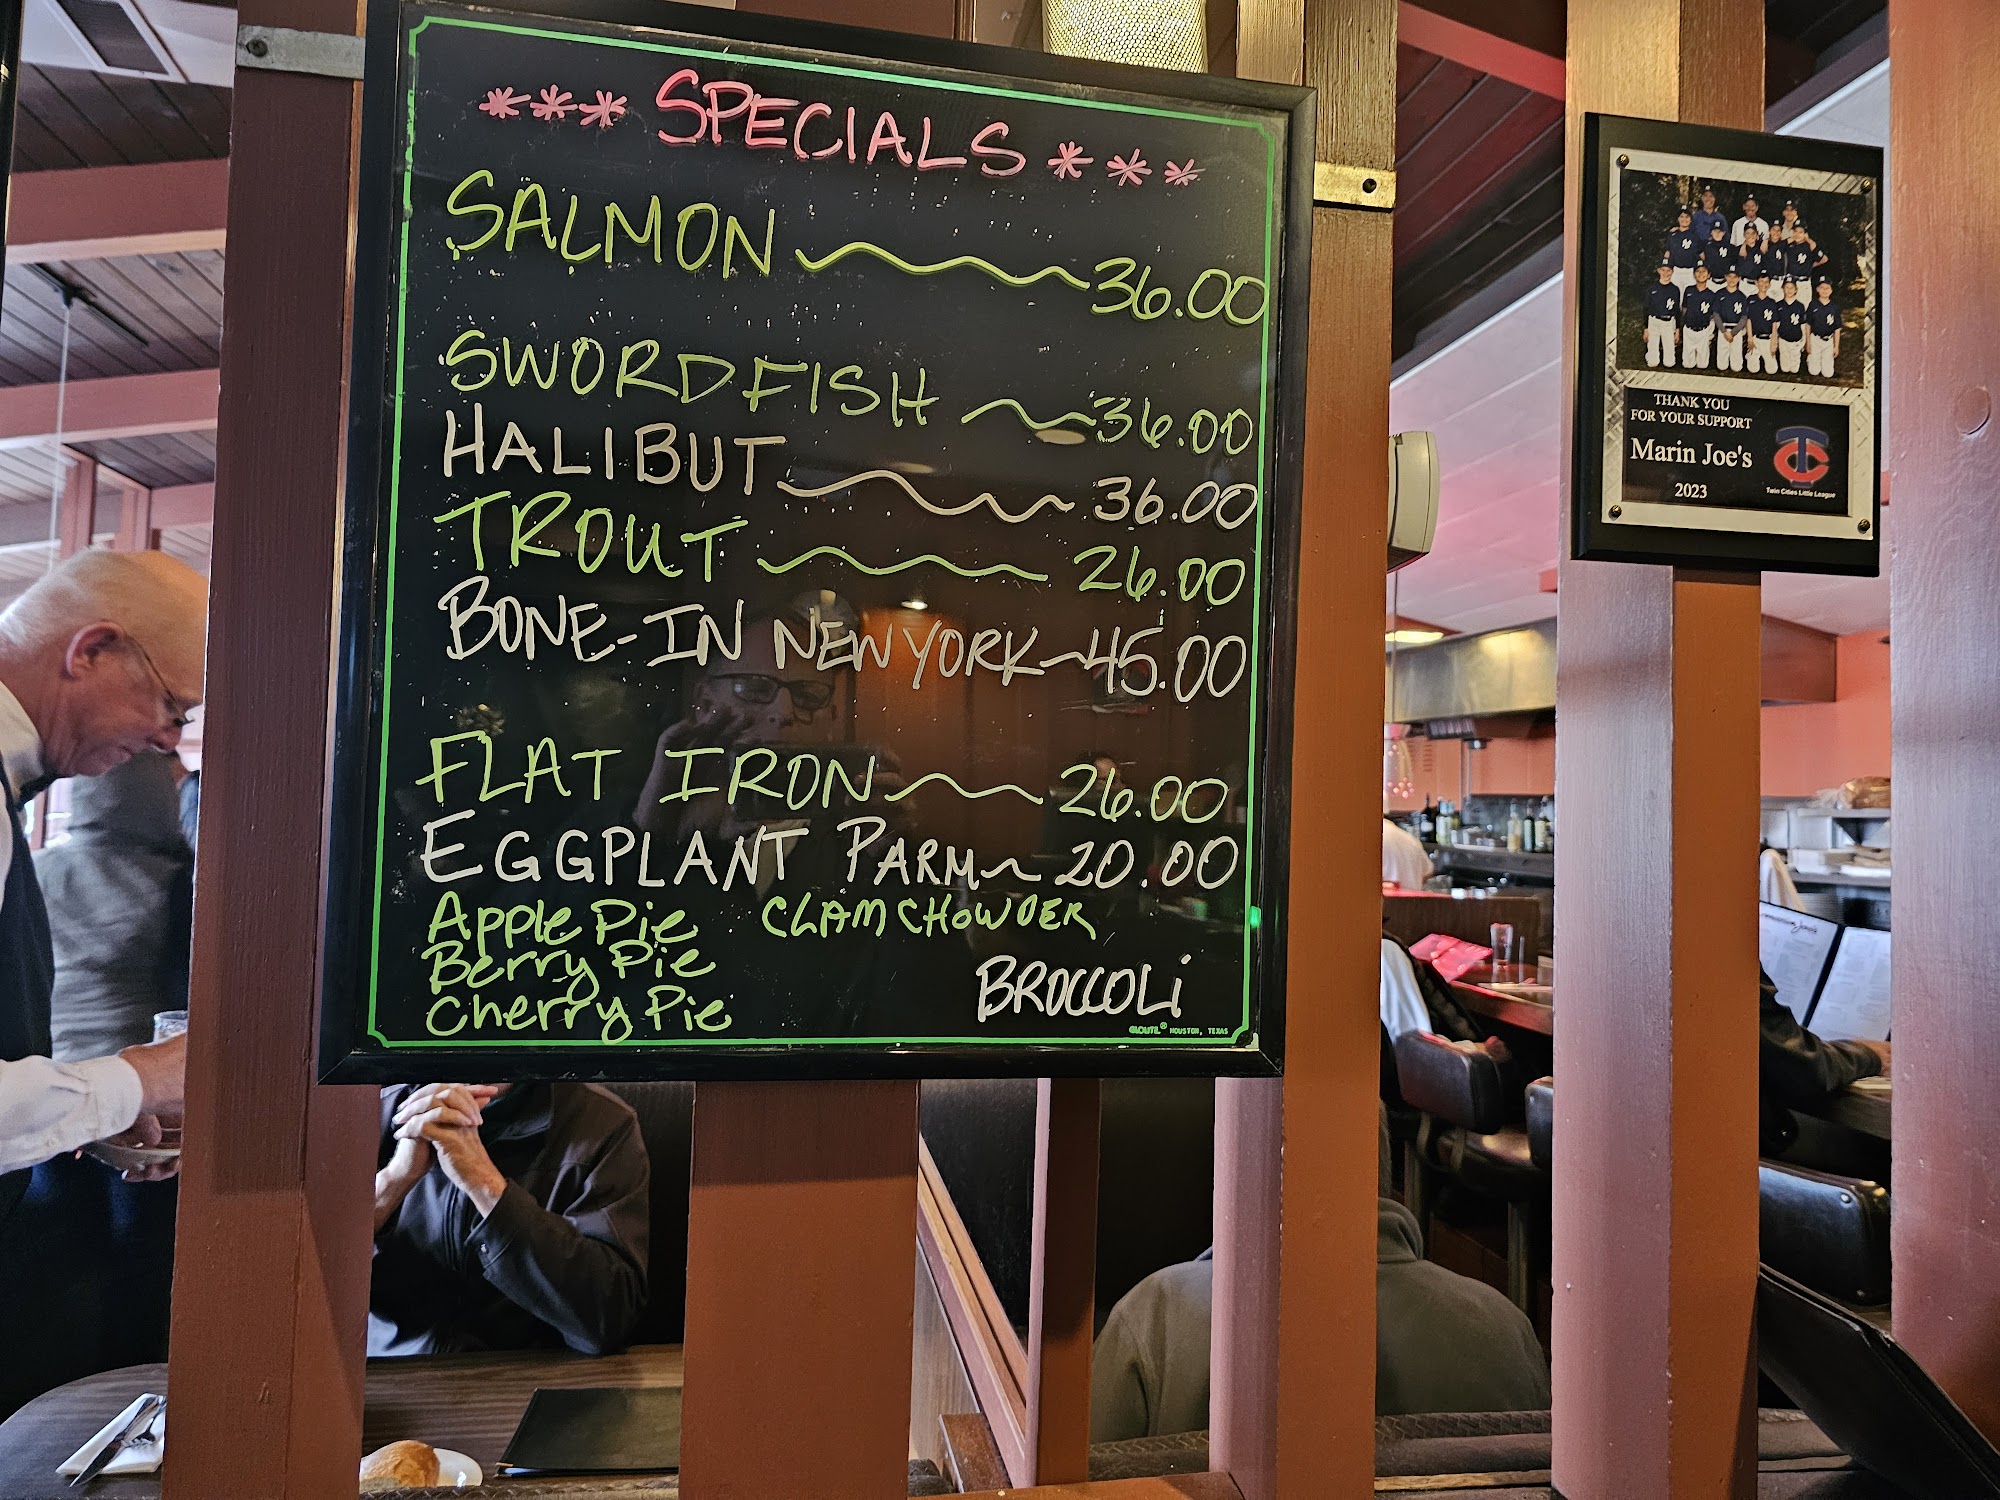 *** SPECIALS ***
SALMON 36.00
SWORDFISH 36.00
HALIBUT 36.00
TROUT 26.00
BONE-IN NEW YORK 45.00
FLAT IRON 26.00
EGGPLANT PARM 20.00
Apple Pie CLAM CHOWDER
Berry Pie
BROCCOLi
Cherry Pie
HOUSTON, TEXAS
THANK YOU
FOR YOUR SUPPORT
Marin Joe's
2023
TC
Twin Cities Little League